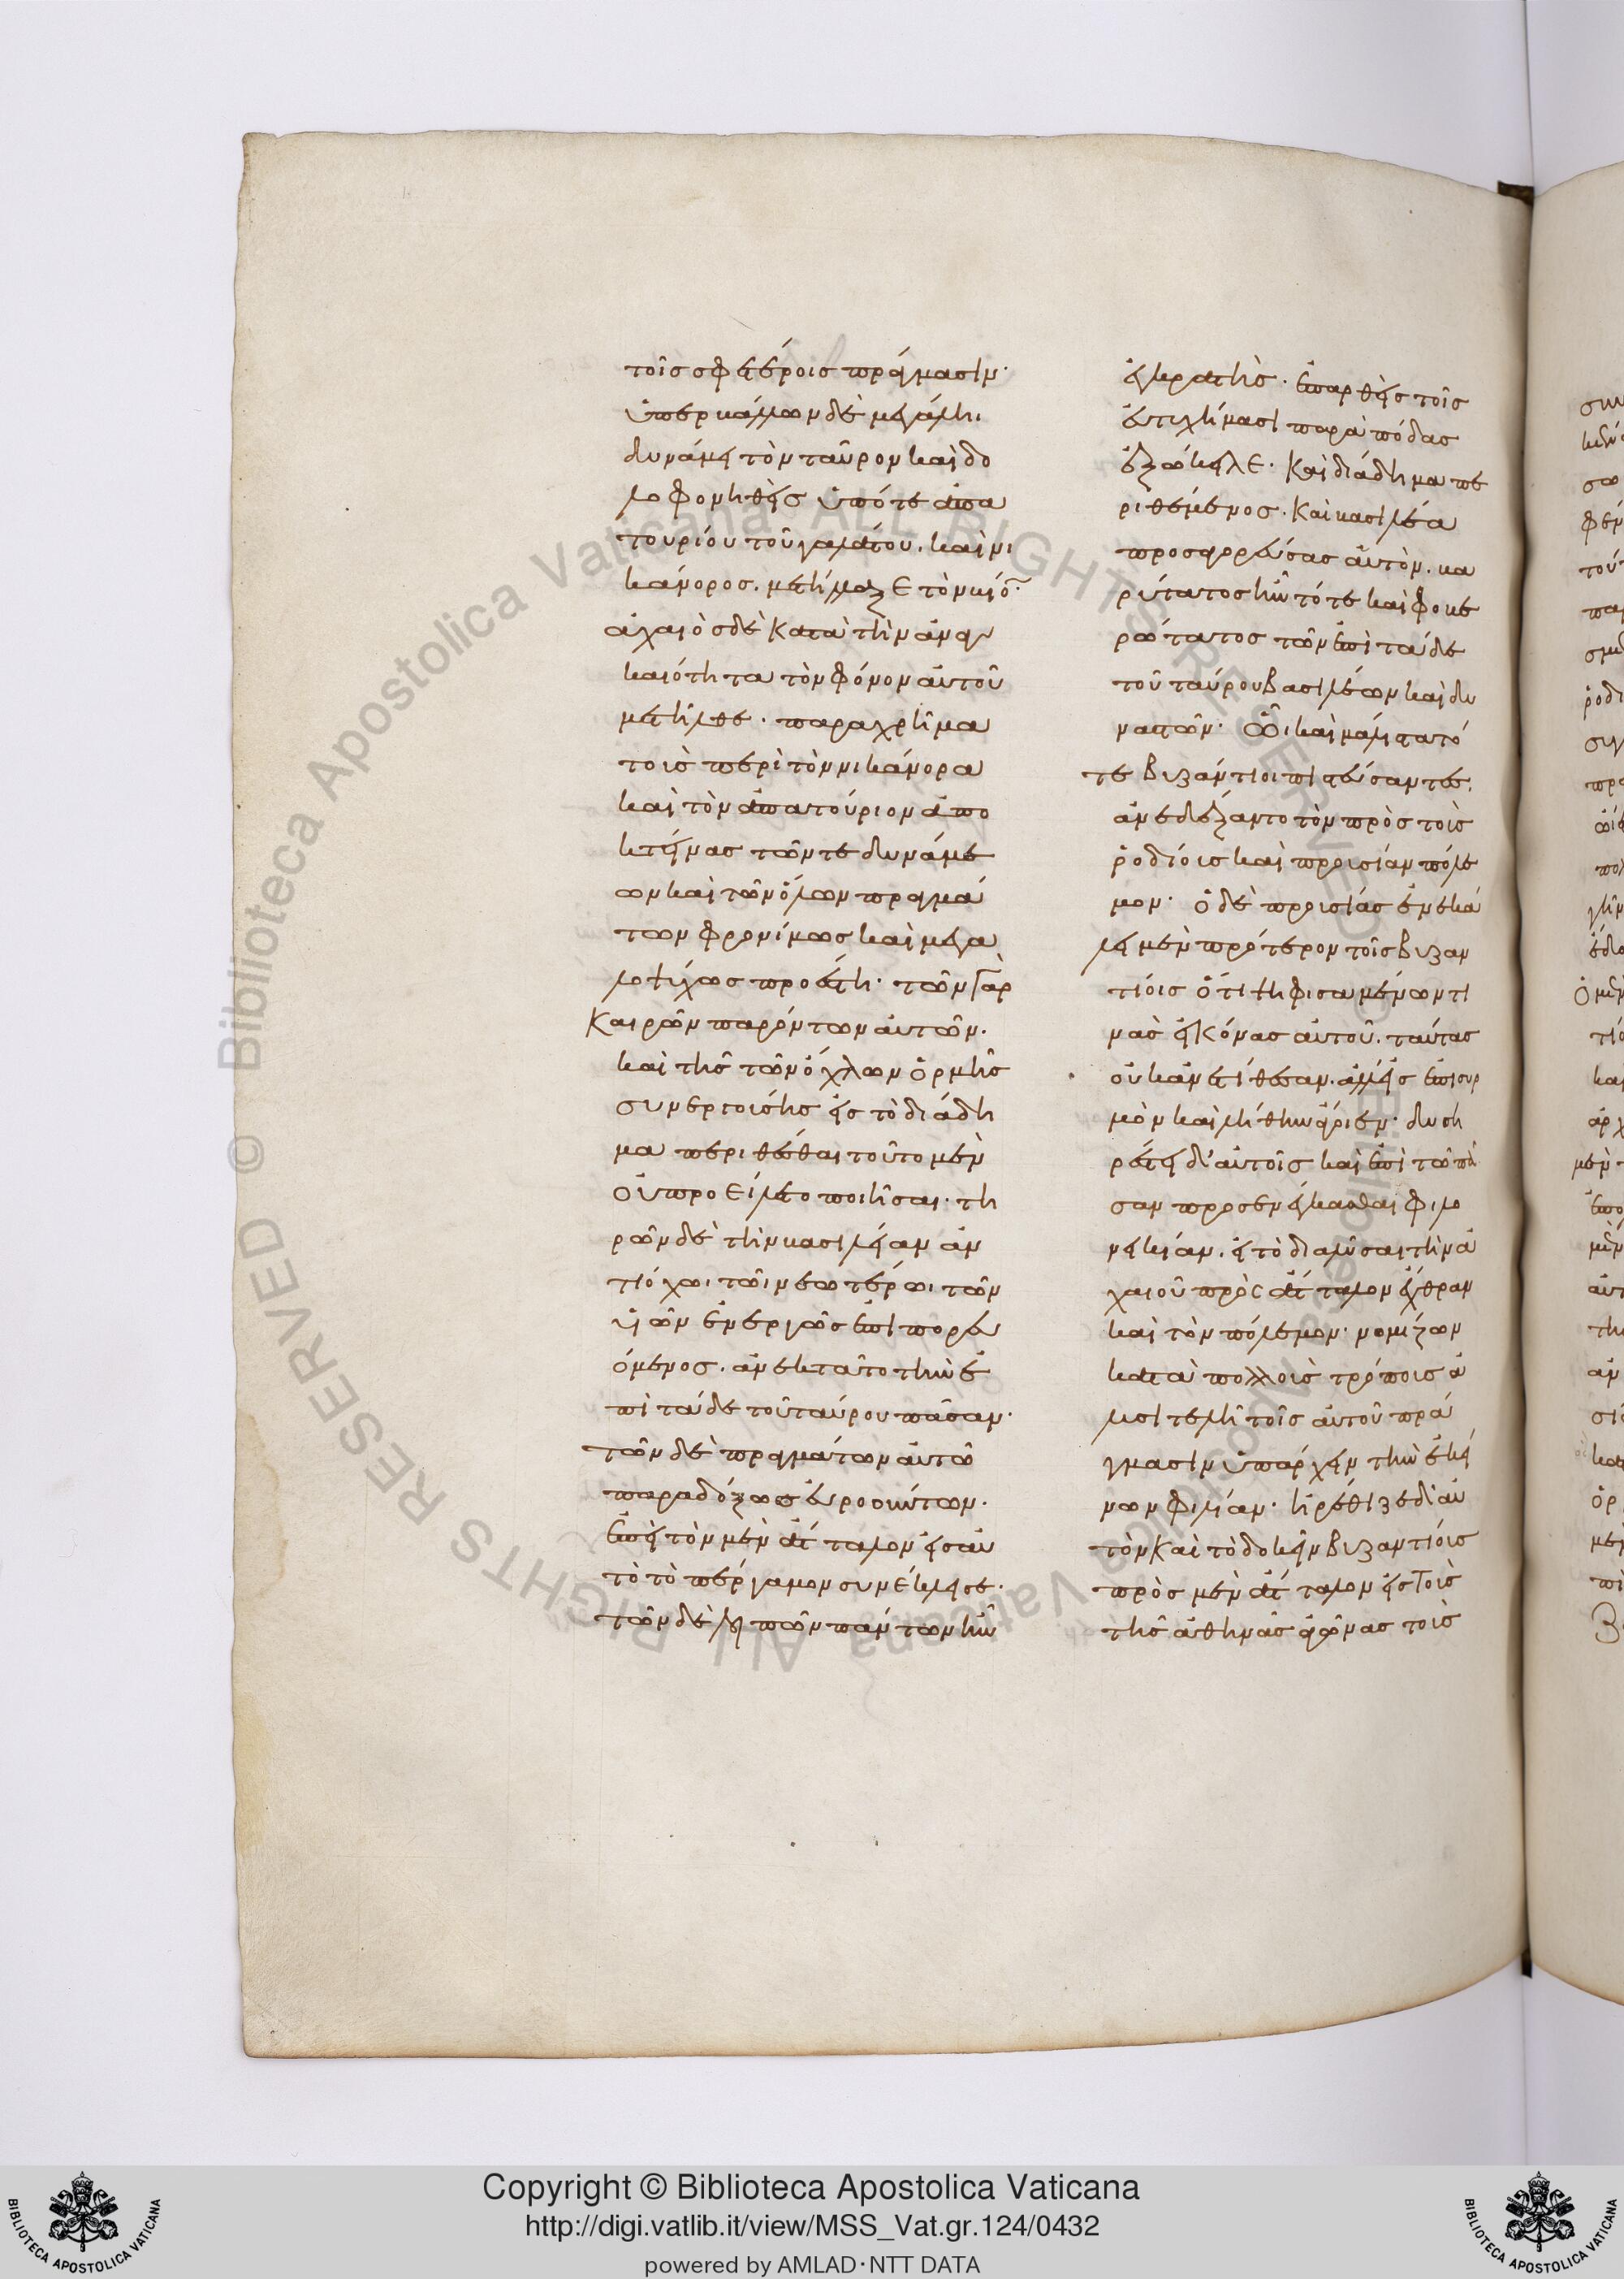 τοῖς σφετέροις πράγμασιν·
ὑπερβάλλων δὲ μεγάληι
δυνάμει τὸν ταῦρον καὶ δο
λοφονηθεὶς ὑπό τε ἀπα
τουρίου τοῦ γαλάτου. καὶ νι
κάνορος. μετήλλαξε τὸν βίο̅·
ἀχαιὸς δὲ κατὰ τὴν ἀναγ
καιότητα τὸν φόνον αὐτοῦ
μετῆλθε. παραχρῆμα
τοὺς περὶ τὸν νικάνορα
καὶ τὸν ἀπατούριον ἀπο
κτείνας τῶν τε δυνάμε
ων καὶ τῶν ὅλων πραγμά
των φρονίμως καὶ μεγα
λοψύχως προέστη· τῶν γὰρ
καιρῶν παρόντων αὐτῶν.
καὶ τῆς τῶν ὄχλων ὁρμῆς
συνεργούσης εἰς τὸ διάδη
μα περιθέσθαι τοῦτο μὲν
οὐ προείλετο ποιῆσαι· τη
ρῶν δὲ τὴν βασιλείαν ἀν
τιόχωι τῶι νεωτέρωι τῶν
υἱῶν ἐνεργῶς ἐπιπορευ
όμενος. ἀνεκτᾶτο τὴν ἐ
πὶ τάδε τοῦ ταύρου πᾶσαν·
τῶν δὲ πραγμάτων αὐτῶ
παραδόξως εὐροούντων.
ἐπεὶ τὸν μὲν ἄτταλον εἰς αὐ
τὸ τὸ πέργαμον συνέκλεισε·
τῶν δὲ λοιπῶν πάντων ἦν
ἐγκρατὴς· ἐπαρθεὶς τοῖς
εὐτυχήμασι παρὰ πόδας
ἐξώκειλε· καὶ διάδημα πε
ριθέμενος. καὶ βασιλέα
προσαγορεύσας αὐτὸν. βα
ρύτατος ἦν τότε καὶ φοβε
ρώτατος τῶν ἐπὶ τάδε
τοῦ ταύρου βασιλέων καὶ δυ
ναστῶν· ὧι καὶ μάλιστα τό
τε βυζάντιοι πιστεύσαντες.
ἀνεδέξαντο τὸν πρὸς τοὺς
ῥοδίους καὶ προυσίαν πόλε
μον· ὁ δὲ προυσίας ἐνεκά
λει μὲν πρότερον τοῖς βυζαν
τίοις ὅτι ψηφισαμένων τι
νὰς εἰκόνας αὐτοῦ. ταύτας
οὐκ ἀνετίθεσαν. ἀλλ' εἰς ἐπισυρ
μὸν καὶ λήθην ἄγοιεν· δυση
ρέστει δ' αὐτοῖς καὶ ἐπὶ τῶ πᾶ
σαν προσενέγκασθαι φιλο
νεικίαν. εἰς τὸ διαλῦσαι τὴν ἀ
χαιοῦ πρὸς ἄτταλον ἔχθραν
καὶ τὸν πόλεμον· νομίζων
κατὰ πολλοὺς τρόπους ἀ
λυσιτελῆ τοῖς αὐτοῦ πρά
γμασιν ὑπάρχειν τὴν ἐκεί
νων φιλίαν· ἠρέθιζε δ' αὐ
τὸν καὶ τὸ δοκεῖν βυζαντίους
πρὸς μὲν ἄτταλον εἰς τοὺς
τῆς ἀθηνᾶς ἀγῶνας τοὺς
Copyright © Biblioteca Apostolica Vaticana
http://digi.vatlib.it/view/MSS_Vat.gr.124/0432
powered by AMLAD·NTT DATA